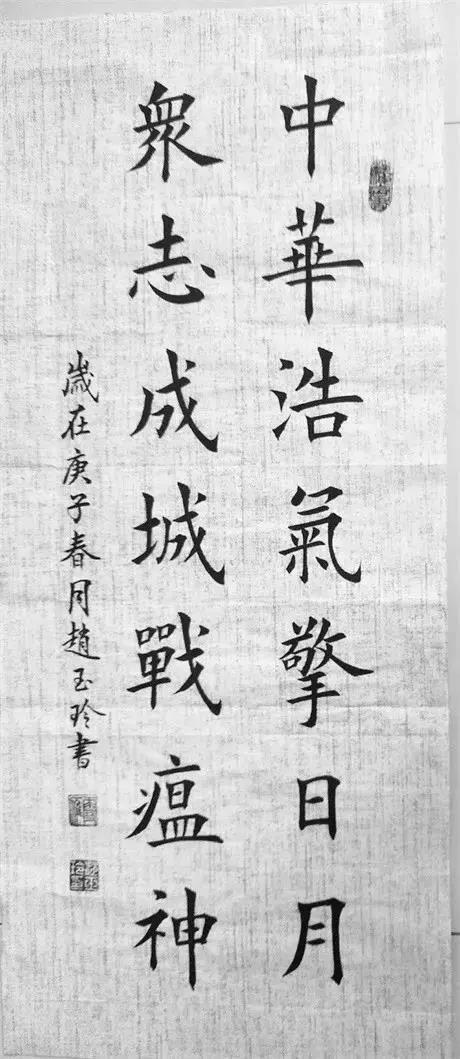 中華浩氣擎日月
衆志成城戰瘟神
歲在庚子春月趙玉玲書